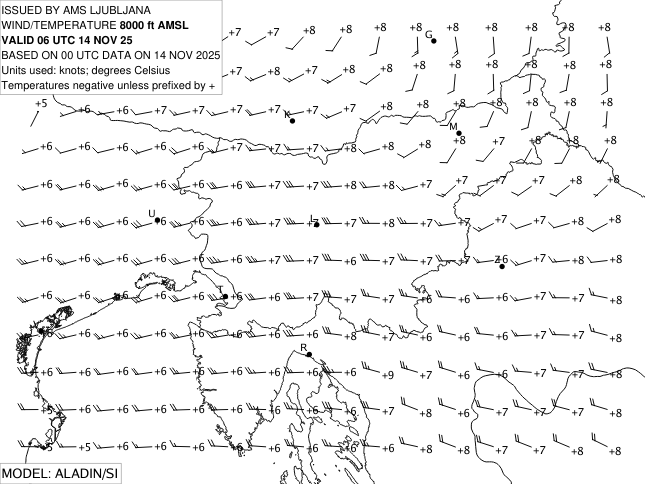 ISSUED BY AMS LJUBLJANA
WIND/TEMPERATURE 8000 ft AMSL
VALID 06 UTC 14 NOV 25
BASED ON 00 UTC DATA ON 14 NOV 2025
Units used: knots; degrees Celsius
Temperatures negative unless prefixed by +
+7 +8 +8 +8 +8 G +8 +8 +8 +8 +8
+7 +8 +7 +8 +8 +8 +8 +8 +8 +8
+5 +6 +6 +7 +7 +7 K +7 +7 +8 +8 +8 +8 +8 +8 +8
M
+6 +6 +6 +6 +6 +7 +7 +7 +8 +8 +8 +8 +7 +8 +8 +8
+6 +6 +6 +6 +6 +6 +7 +7 +7 +8 +7 +7 +7 +7 +8 +8
U
+6 +6 +6 +6 +6 +6 +7 L +7 +8 +7 +7 +7 +7 +8 +8
+6 +6 +6 +6 +6 +6 +7 +6 +7 +7 +7 Z +6 +7 +7 +8
+6 +6 +6 +6 T +6 +6 +7 +7 +7 +6 +6 +7 +7 +8
+6 +6 +6 +6 +6 +6 +6 +6 +8 +7 +6 +6 +7 +7 +8
R
+6 +6 +6 +6 +6 +6 +6 +6 +6 +9 +7 +6 +6 +7 +7 +8
+5 +6 +6 +6 +6 +6 +6 +6 +6 +7 +8 +6 +7 +7 +7 +8
+5 +5 +6 +6 +6 +6 +6 +6 +6 +6 +8 +8 +7 +7 +8 +8
MODEL: ALADIN/SI